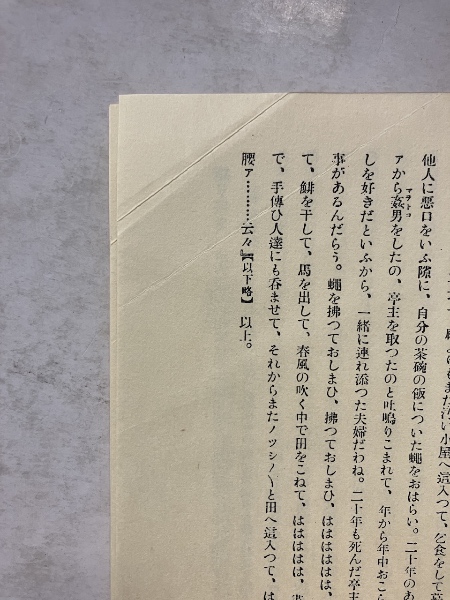 まだ汚い小屋へ這入つて、乞食をして
他人に悪口をいふ隙に、自分の茶碗の飯についた蠅をおはらい。二十年のあ
アから姦男をしたの、亭主を取つたのと吐鳴りこまれて、年から年中おこら
マヲトコ
しを好きだといふから、一緒に連れ添つた夫婦だわね。二十年も死んだ亭主
事があるんだらう。蠅を拂つておしまひ、拂つておしまひ、はははははは、
て、鯡を干して、馬を出して、春風の吹く中で田をこねて、はははははは、
で、手傳ひ人達にも呑ませて、それからまたノツシノ〵と田へ這入つて、は
腰ァ………云々』【以下略】以上。